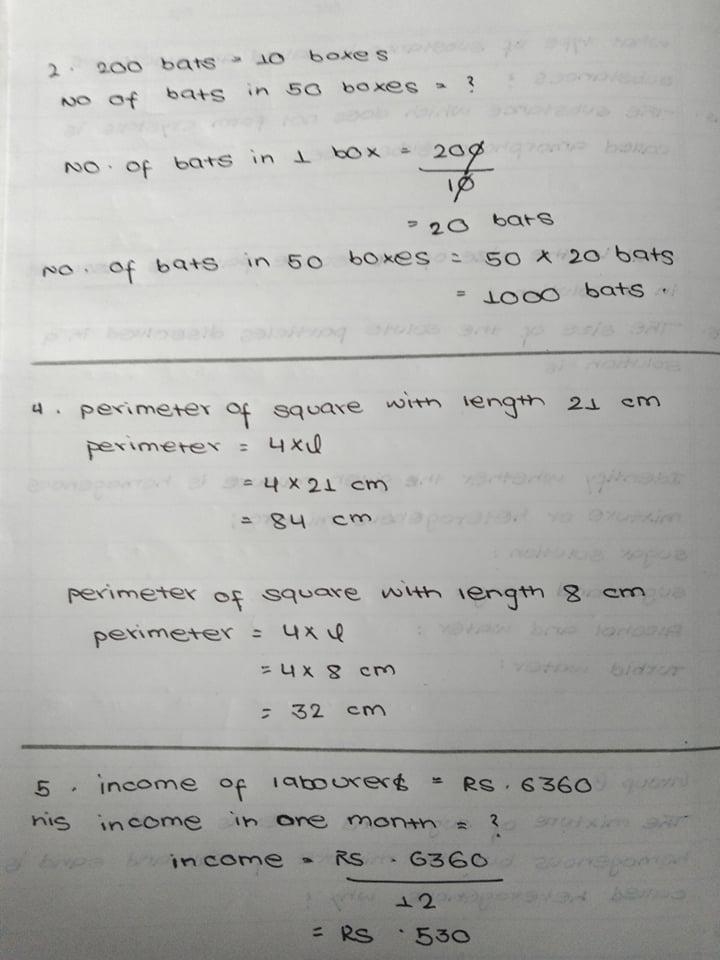 2. 200 bats = 10 boxes
NO of bats in 50 boxes = ?
NO. of bats in 1 box = 200
10
= 20 bats
NO. of bats in 50 boxes = 50 x 20 bats
= 1000 bats.
4. perimeter of square with length 21 cm
perimeter = 4xl
= 4 x 21 cm
= 84 cm
perimeter of square with length 8 cm
perimeter = 4x l
= 4 x 8 cm
= 32 cm
5. income of labourer = RS. 6360
his income in one month = ?
income = RS. 6360
12
= RS. 530